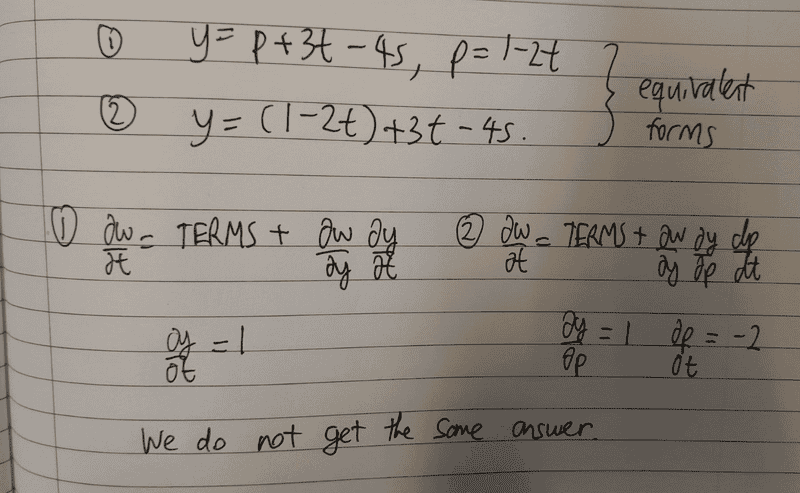 ① y = p + 3t - 4s, p = 1-2t
② y = (1-2t) + 3t - 4s.
} equivalent forms
① ∂w/∂t = TERMS + ∂w/∂y ∂y/∂t ② ∂w/∂t = TERMS + ∂w/∂y ∂y/∂p dp/dt
∂y/∂t = 1 ∂y/∂p = 1 ∂p/∂t = -2
We do not get the same answer.